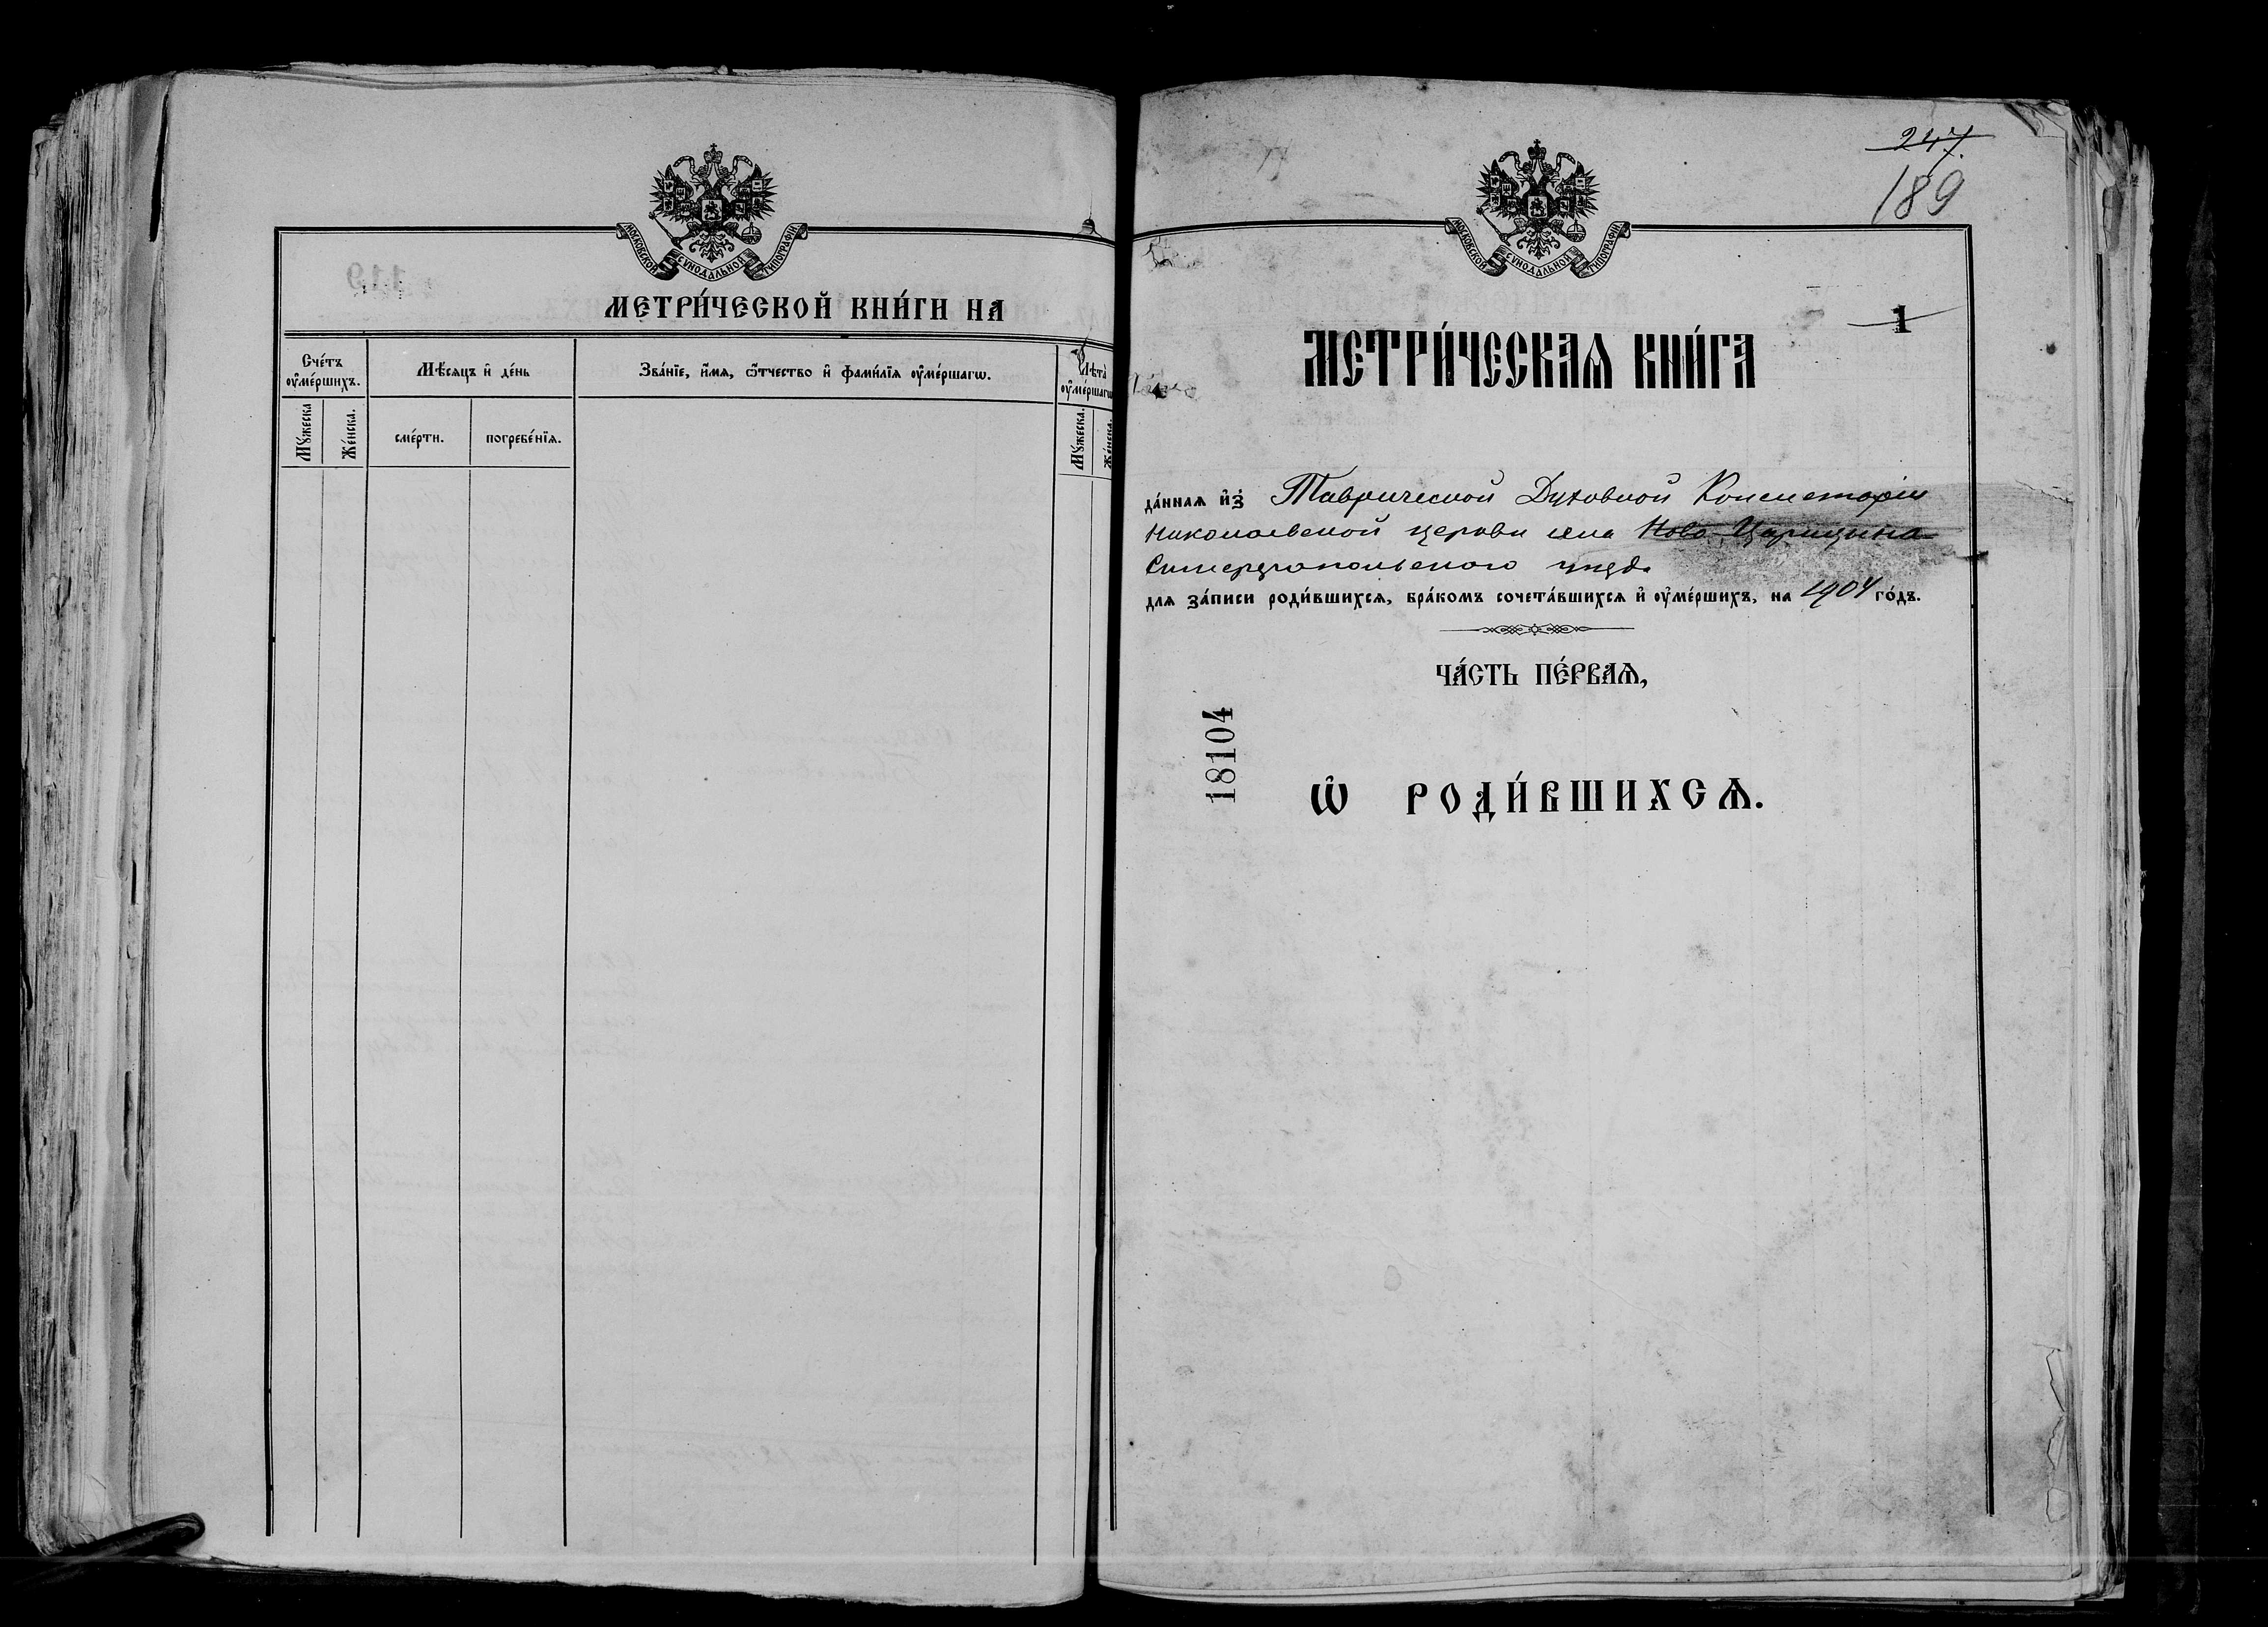 МОСКОВСКОЙ СѴНОДАЛЬНОЙ ТИПОГРАФІИ
МЕТРИ́ЧЕСКОЙ КНИ́ГИ НА
Сче́тъ ᲂу҆ме́ршихъ.
Мѣ́сяцъ и҆ де́нь
Зва́нїе, и҆́мя, ѻ҆́тчество и҆ фами́лїя ᲂу҆ме́ршагѡ.
Лѣ́та ᲂу҆ме́ршагѡ
Мꙋ́жеска
Же́нска.
сме́рти.
погребе́нїя.
Мꙋ́жеска.
Же́нска.
247
189
МОСКОВСКОЙ СѴНОДАЛЬНОЙ ТИПОГРАФІИ
1
МЕТРИ́ЧЕСКАѦ КНИ́ГА
да́нная и҆з̾ Таврической Духовной Консисторіи
Николаевской церкви села Ново-Царицына
Симферопольского уезд.
для за́писи роди́вшихся, бра́комъ сочета́вшихся и҆ ᲂу҆ме́ршихъ, на 1904 го́дъ.
ЧА́СТЬ ПЕ́РВАѦ,
18104
Ѽ РОДИ́ВШИХСѦ.